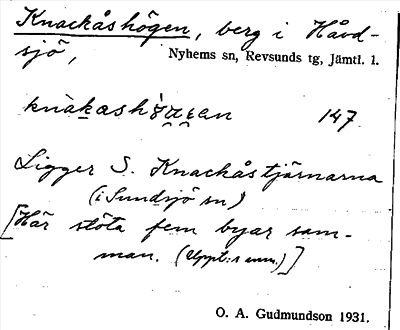 Knackåshögen, berg i Håvd-
sjö,
Nyhems sn, Revsunds tg, Jämtl. l.
147
Ligger S. Knackåstjärnarna
(i Sundsjö sn)
[Här stöta fem byar sam-
man. (Uppt:s anm.)]
O. A. Gudmundson 1931.